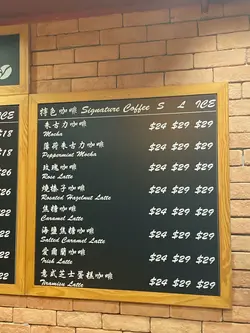 特色咖啡 Signature Coffee S L ICE
朱古力咖啡 $24 $29 $29
Mocha
薄荷朱古力咖啡 $24 $29 $29
Peppermint Mocha
玫瑰咖啡 $24 $29 $29
Rose Latte
燒榛子咖啡 $24 $29 $29
Roasted Hazelnut Latte
焦糖咖啡 $24 $29 $29
Caramel Latte
海鹽焦糖咖啡 $24 $29 $29
Salted Caramel Latte
愛爾蘭咖啡 $24 $29 $29
Irish Latte
意式芝士蛋糕咖啡 $24 $29 $29
Tiramisu Latte
ICE
$18